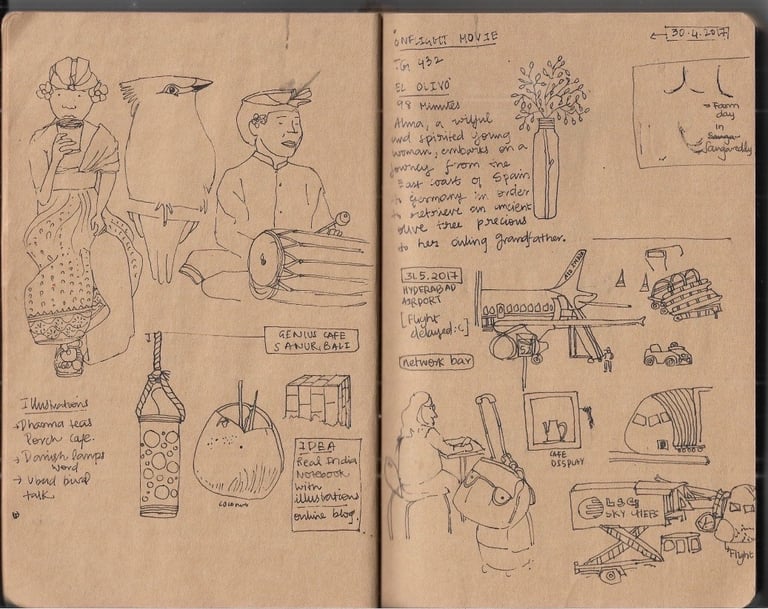 GENIUS CAFE
SANUR, BALI
Illustrations
→ Dharma teas
Porch cafe.
→ Danish lamps
word
→ Ubud bird
talk
coconut
IDEA
Real India
Notebook
with
illustrations
online blog.
INFLIGHT MOVIE
432
EL OLIVO
98 Minutes
Alma, a wilful
and spirited young
woman, embarks on a
journey from the
East coast of Spain
to Germany in order
to retrieve an ancient
olive tree precious
to her ailing grandfather.
30.4.2017
Farm
day
in
Sangareddy
31.5.2017
HYDERABAD
AIRPORT
[Flight
delayed :(]
AIR INDIA
network bar
CAFE
DISPLAY
LSG
SKY CHEFS
Flight